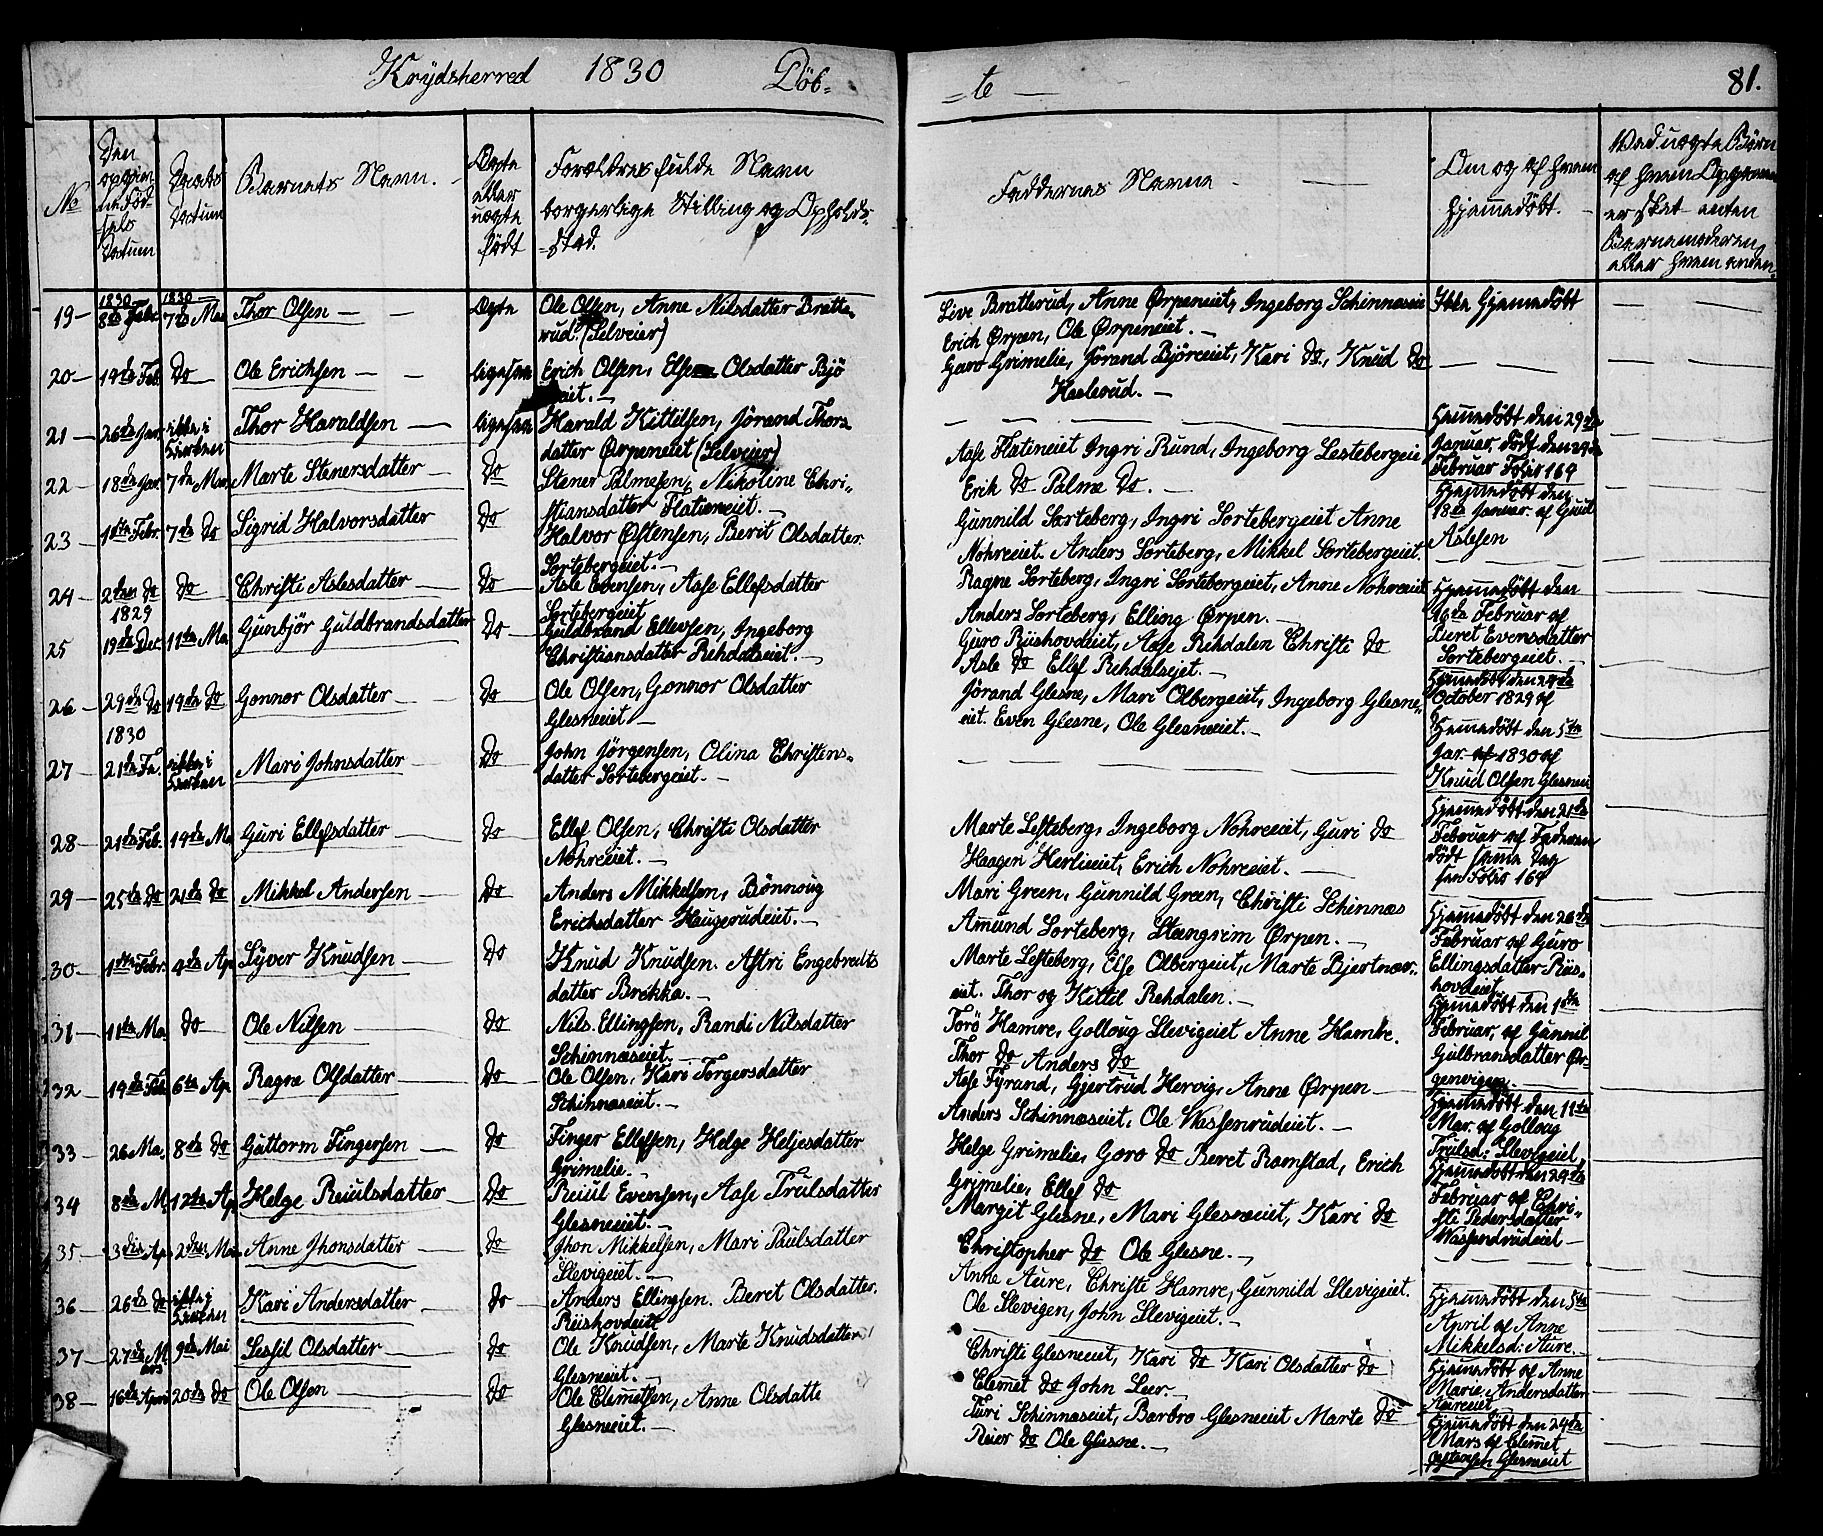 Krydsherred 1830 Döb-
-te — 81.
No
Den opgivne Födsels Datum
Daabs Datum
Barnets Navn.
Ægte eller uægte födt
Forældres fulde Navn borgerlige Stilling og Opholds-sted.
Faddernes Navne
Om og af hvem hjemmedöbt.
Ved uægte Börn af hvem Opgivelsen er skét enten Barnemoderen eller hvem anden
19 1830 8de Febr 1830 7de Ma Thor Olsen Ægte Ole Olsen, Anne Nilsdatter Bratte-
rud. (Selveier)
Live Bratterud, Anne Ørpeneiet, Ingeborg Schinnaseie Ikke hjemmedöbt
Erich Ørpen, Ole Ørpeneiet.
20 19de Feb. Do Ole Erichsen ligesaa Erich Olsen, Else Olsdatter Bjö
eiet.
Goro Grimelie, Jörand Björeeiet, Kari Do, Knud Do
Haslerud.
21 26de Jan ikke i Kirken Thor Haraldsen ligesaa Harald Kittilsen, Jörand Thors
datter Ørpeneiet (Selveier)
Hjemmedöbt den 29de
Januar, död den 24de
Februar Folio 169
22 18de Jan. 7de Mar. Marte Stenersdatter Do Stener Palmesen, Nikoline Chri-
stiansdatter Flatineiet.
Aase Flatineiet Ingri Rund, Ingeborg Lesteberg eie
Erik Do Palme Do.
Hjemmedöbt den
18de Januar af Guul
Aslesen
23 1ste Febr. 7de Do Sigrid Halvorsdatter Do Halvor Østensen, Berit Olsdatter
Sortebergeiet.
Gunnild Sorteberg, Ingri Sortebergeiet Anne
Nohreeiet. Anders Sorteberg, Mikkel Sortebergeiet.
24 2den Do Do Christi Aslesdatter Do Asle Evensen, Aase Ellefsdatter
Sortebergeiet
Ragne Sorteberg, Ingri Sortebergeiet, Anne Nohreeiet
Anders Sorteberg, Elling Ørpen.
Hjemmedöbt den
16de Februar af
Lieret Evensdatter
Sortebergeiet.
25 1829 19de Dec 11te Ma Gunbjör Guldbrandsdatter Do Guldbrand Ellevsen, Ingeborg
Christiansdatter Rehdalseiet.
Guro Riishovdeiet, Aase Rehdalen Christi Do
Asle Do Ellef Rehdalseiet.
Hjemmedöbt den 24de
October 1829 af
26 29de Do 19de Do Gonnor Olsdatter Do Ole Olsen, Gonnor Olsdatter
Glesneeiet
Jörand Glesne, Mari Olbergeiet, Ingeborg Glesne-
eiet. Even Glesne, Ole Glesneeiet.
Hjemmedöbt den 5te
Jar. af 1830 af
Knud Olsen Glesneei
27 1830 21de Fe. ikke i Kirken Mari Johnsdatter Do John Jörgensen, Olina Christens-
datter Sortebergeiet.
Hjemmedöbt den 21de
Februar af Faderen
död samme Dag
see Folio 169
28 21de Feb. 19de Ma Guri Ellefsdatter Do Ellef Olsen, Christi Olsdatter
Nohreeiet.
Marte Lesteberg, Ingeborg Nohreeiet, Guri Do
Haagen Herlieeiet, Erich Nohreeiet.
29 25de Do 21de Do Mikkel Andersen Do Anders Mikkelsen, Rönnoug
Erichsdatter Haugerudeiet.
Mari Green, Gunnild Green, Christi Schinnæs
Amund Sorteberg, Steengrim Ørpen.
Hjemmedöbt den 26de
Februar af Guro
Ellingsdatter Riis-
hovdeiet
30 1ste Febr. 4de Ap Syver Knudsen Do Knud Knudsen. Astri Engebredts
datter Brekka.
Marte Lesteberg, Else Olbergeiet, Marte Bjertnæs-
eiet. Thor og Kittil Rehdalen.
Hjemmedöbt den 1ste
Februar, af Gunnil
Gulbransdatter Ør-
genvigen.
31 11te Ma. Do Ole Nilsen Do Nils. Ellingsen, Randi Nilsdatter
Schinnæseiet.
Torö Hamre, Golloug Slevigeiet Anne Hamre.
Thor Do Anders Do
Hjemmedöbt den 11te
Mar. af Golloug
Trulsd: Slevigeiet
32 14de Feb 6te Ap. Ragne Olsdatter Do Ole Olsen, Kari Torgersdatter
Schinnæseiet.
Aase Fyrand, Gjertrud Hervig, Anne Ørpen
Anders Schinnæseiet, Ole Wassenrudeiet.
Hjemmedöbt den 24de
Februar af Chri-
sti Pedersdatter
Wassendrudeiet
33 26 Ma. 8de Do Guttorm Fingersen Do Finger Ellefsen, Helge Heljesdatter
Grimelie.
Helge Grimelie, Goro Do Beret Ramstad, Erich
Grimelie, Ellef Do
34 8de M 12te Ap. Helge Reiulsdatter Do Reiul Evensen, Aase Trulsdatter
Glesneeiet.
Margit Glesne, Mari Glesneeiet, Kari Do
Christopher Do Ole Glesne.
35 3die Ap. 2den Mai Anne Jhonsdatter Do Jhon Mikkelsen, Mari Paulsdatter
Slevigeiet.
Anne Aure, Christi Hamre, Gunnild Slevigeiet.
Ole Slevigen, John Slevigeiet.
Hjemmedöbt den 5te
April af Anne
Mikkelsd: Aure.
36 26de Do ikke i Kirken Kari Andersdatter Do Anders Ellingsen. Beret Olsdatter.
Riishovdeiet
Hjemmedöbt af Anne
Marie Andersdatter
Aureeiet
37 27de M 9de Mai Sessil Olsdatter Do Ole Knudsen, Marte Knudsdatter
Glesneeiet.
Christi Glesneeiet, Kari Do Kari Olsdatter Do
Clemet Do John Leer.
Hjemmedöbt den 29de
Mars af Clemet
Østensen Glesneeiet
38 16de April 20de Do Ole Olsen Do Ole Clemetsen, Anne Olsdatte
Glesneeiet.
Turi Schinnæseiet, Barbro Glesneeiet Marte Do
Reier Do Ole Glesne.